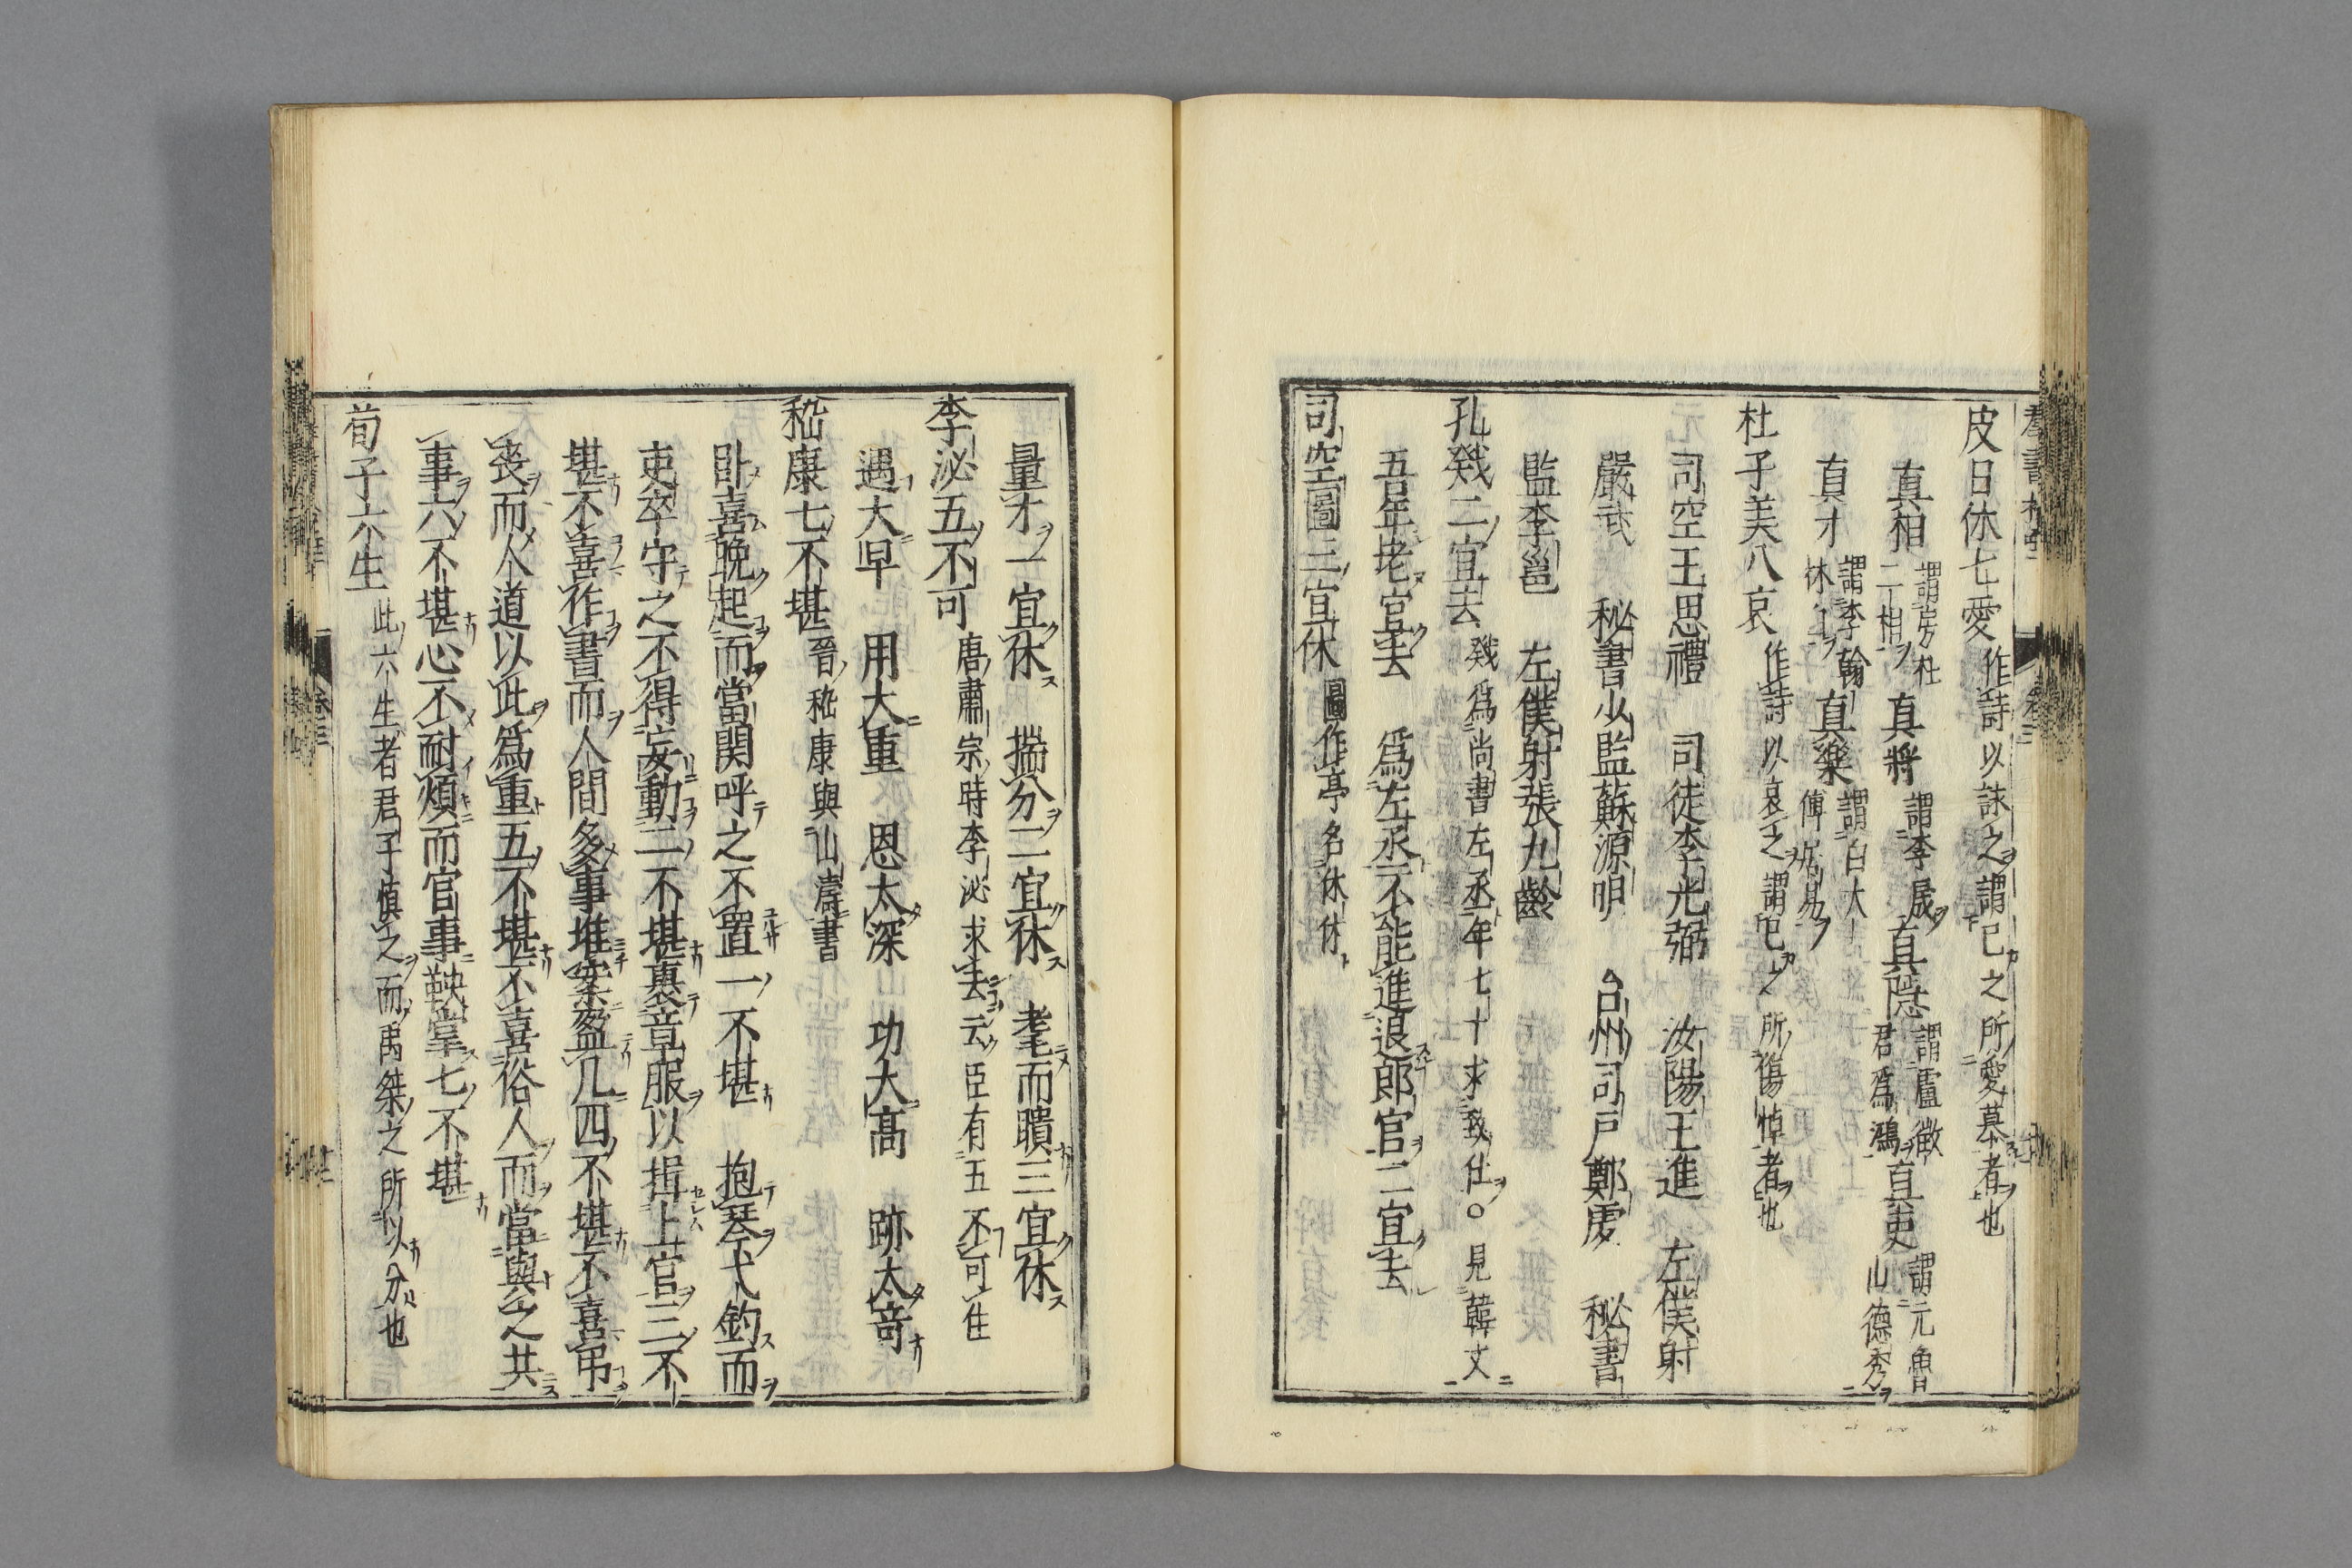 皮日休七愛 作詩以誄之謂己之所愛慕者也
真相 謂房杜二相 真將 謂李晟 真隱 謂盧徵君爲鴻 真吏 謂元魯山德秀
真才 謂李翰林 真樂 謂白太傅居易
杜子美八哀 作詩以哀之謂己之所傷悼者也
司空王思禮 司徒李光弼 汝陽王進 左僕射
嚴武 秘書少監蘇源明 台州司戸鄭虔 秘書
監李邕 左僕射張九齡
孔戣二宜去 戣爲尚書左丞年七十求致仕○見韓文
吾年老官去 爲左丞不能進退郎官二宜去
司空圖三宜休 圖作亭名休休
量才一宜休 揣分二宜休 耄而聵三宜休
李泌五不可 唐肅宗時李泌求去云臣有五不可住
遇大早 用大重 恩太深 功大髙 跡太竒
嵇康七不堪 晉嵇康與山濤書
卧喜晚起而當関呼之不置一不堪 抱琴弋釣而
吏卒守之不得妄動二不堪裹章服以揖上官三不
堪不喜作書而人間多事堆案盈几四不堪不喜弔
喪而人道以此爲重五不堪不喜俗人而當與之共
事六不堪心不耐煩而官事鞅掌七不堪
荀子六生 此六生者君子慎之而禹桀之所以分也